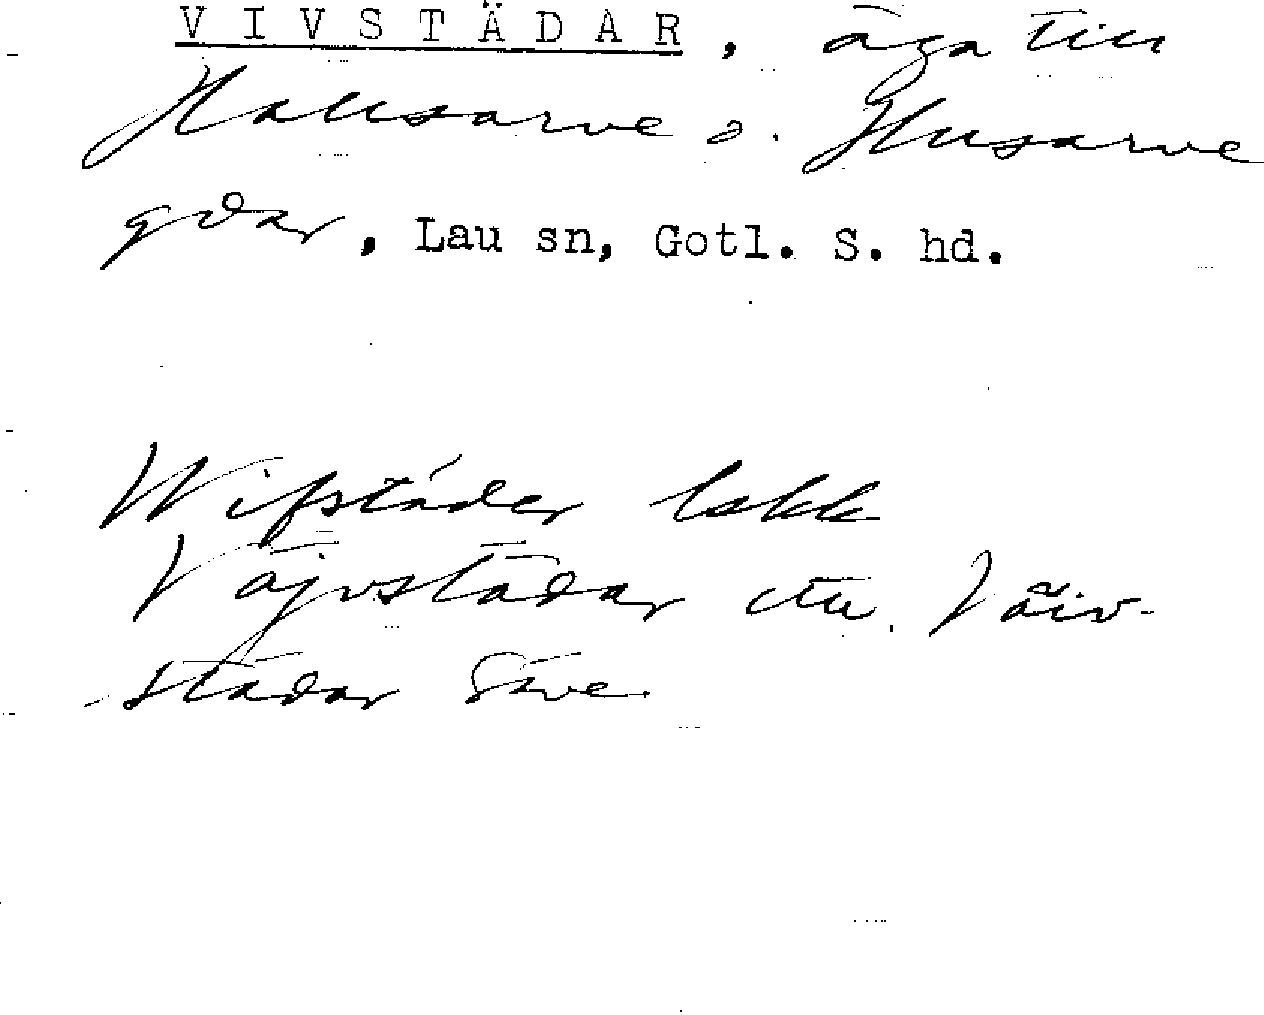 VIVSTÄDAR, äga till
Hallsarve o. Husarve
gdar, Lau sn, Gotl. S. hd.
Wifstäder lskk
Väjvstädar
städar Säve